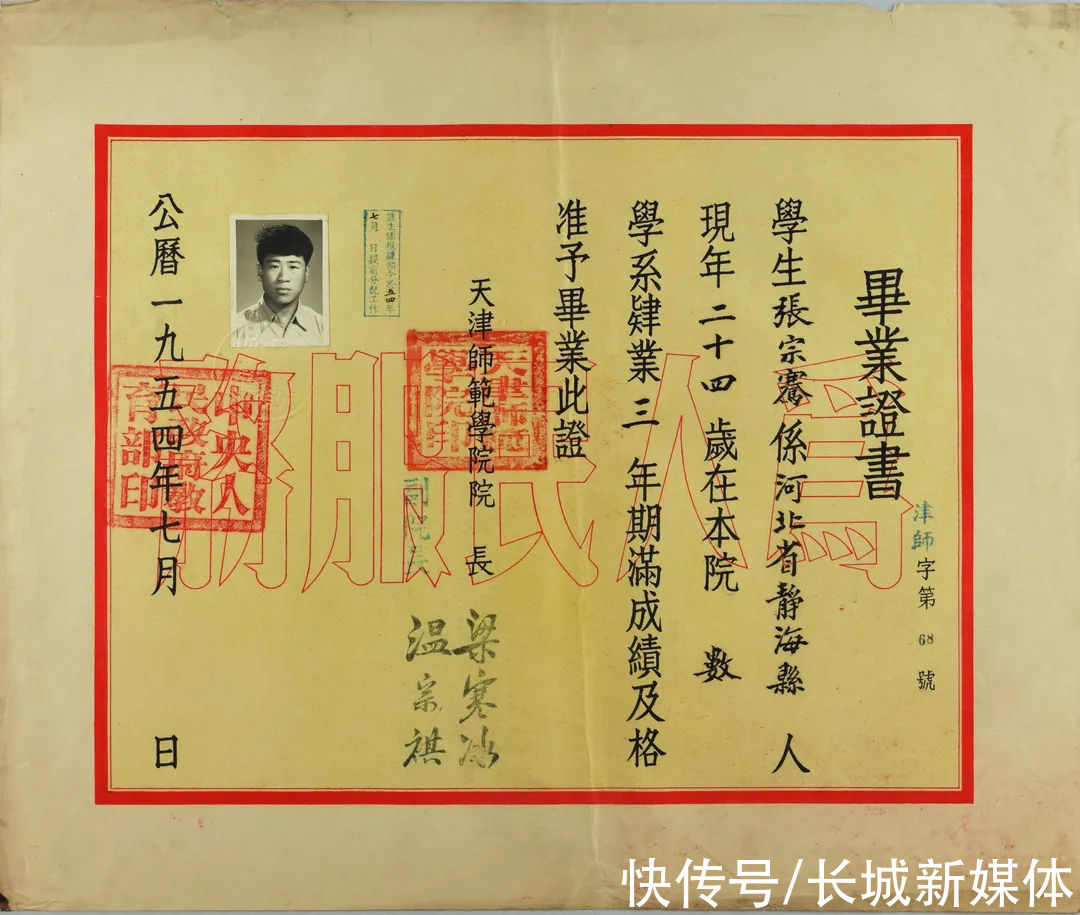 畢業證書
津師字第68號
學生張宗騫係河北省靜海縣人
現年二十四歲在本院數
學系肄業三年期滿成績及格
准予畢業此證
天津師範學院院長 梁寒冰
副院長 温宗祺
公曆一九五四年七月 日
為人民服務
天津師範學院印
中央人民政府教育部印
快传号/长城新媒体